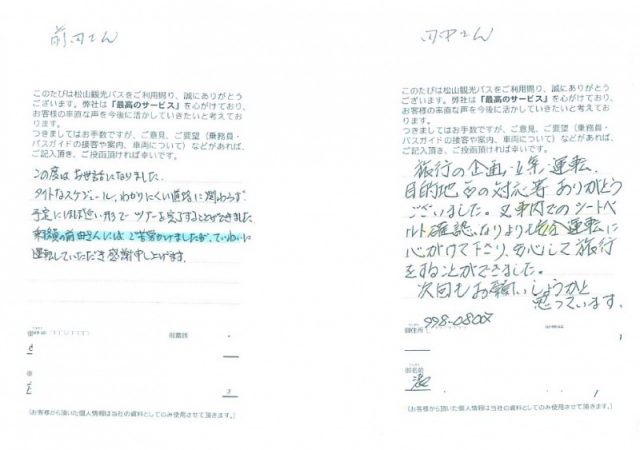 前田さん
このたびは松山観光バスをご利用賜り、誠にありがとう
ございます。弊社は「最高のサービス」を心がけており、
お客様の率直な声を今後に活かしていきたいと考えてお
ります。
つきましてはお手数ですが、ご意見、ご要望（乗務員・
バスガイドの接客や案内、車両について）などがあれば、
ご記入頂き、ご投函頂ければ幸いです。
この度はお世話になりました。
タイトなスケジュール、わかりにくい道路に関わらず、
予定にほぼ近い形でツアーを完了することができました。
の前田さんにはご苦労かけましたが、ていねいに
運転していただき感謝申し上げます。
（お客様から頂いた個人情報は当社の資料としてのみ使用させて頂きます。）
田中さん
このたびは松山観光バスをご利用賜り、誠にありがとう
ございます。弊社は「最高のサービス」を心がけており、
お客様の率直な声を今後に活かしていきたいと考えてお
ります。
つきましてはお手数ですが、ご意見、ご要望（乗務員・
バスガイドの接客や案内、車両について）などがあれば、
ご記入頂き、ご投函頂ければ幸いです。
旅行の企画、立案、運転、
目的地での対応等ありがとう
ございました。又車内でのシートベ
ルト確認、なりよりも安全運転に
心がけて下さり、安心して旅行
をすることができました。
次回もお願いしようかと
思っています。
998-080
御住所
御名前
（お客様から頂いた個人情報は当社の資料としてのみ使用させて頂きます。）